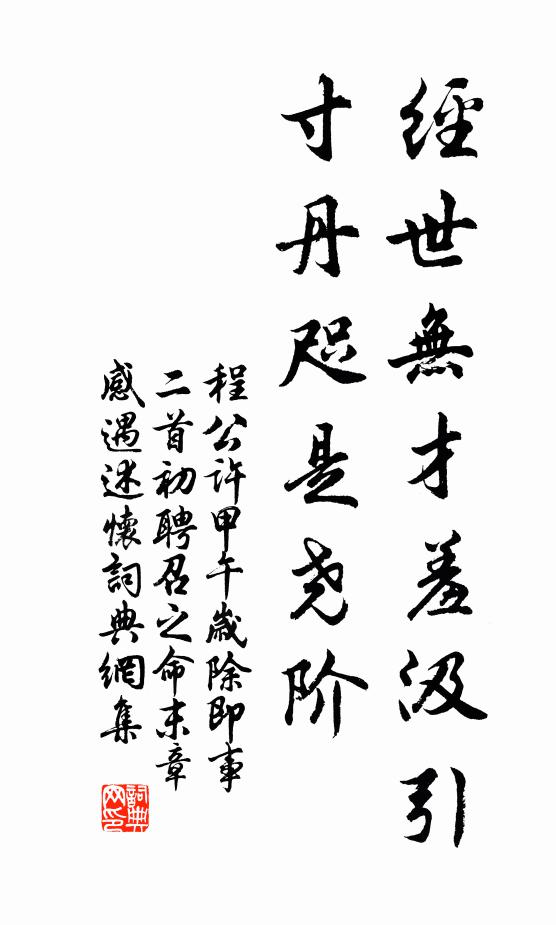 經世無才羞汲引
寸丹咫是尧阶
程公許甲午歲除即事
二首初聘召之命末章
感遇述懷詞典網集
詞典
网印